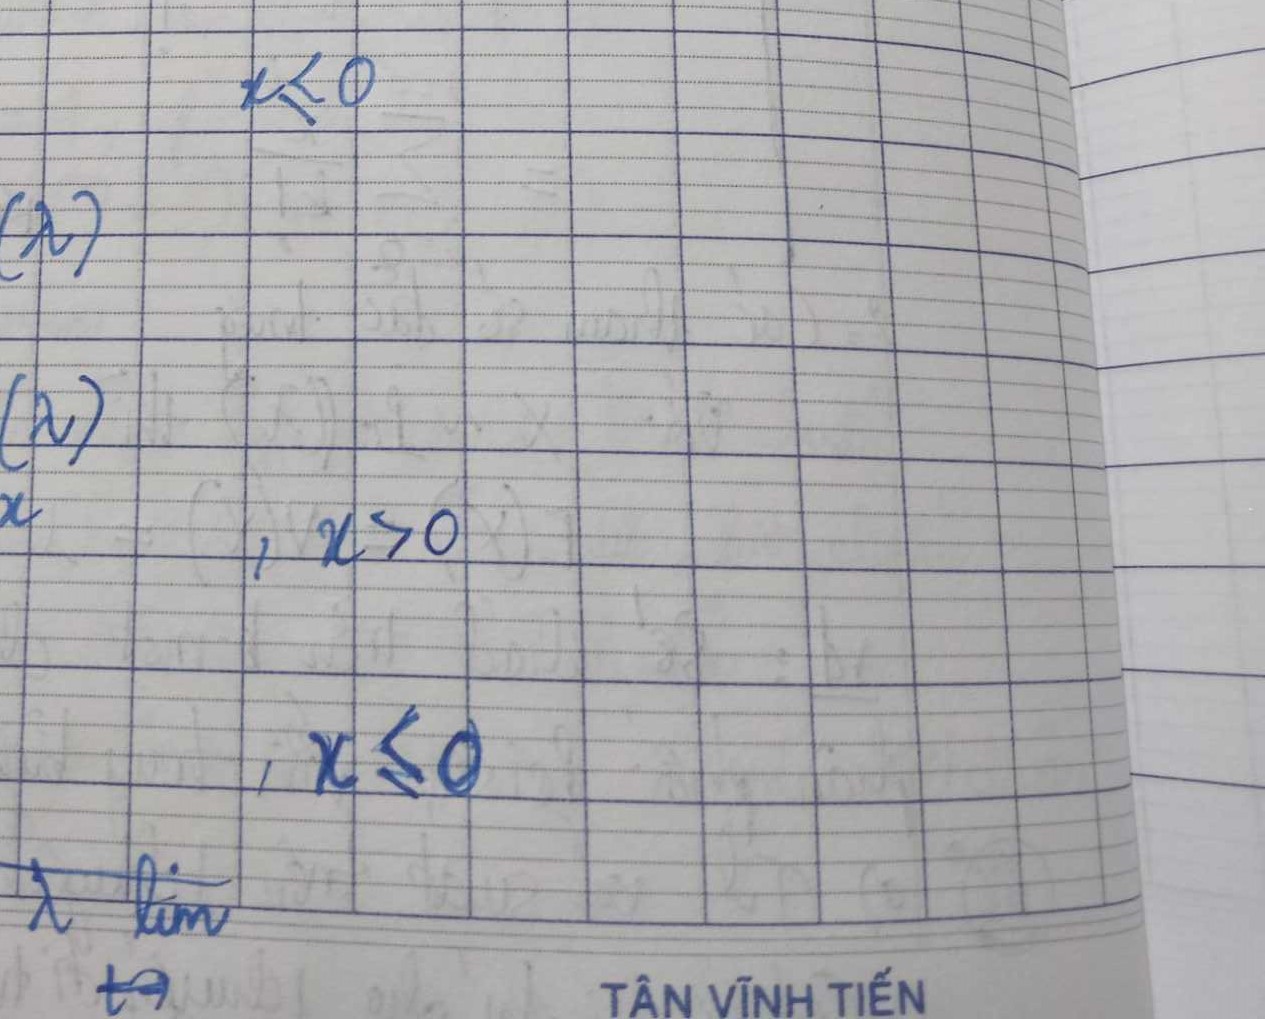 x ≤ 0
(λ)
(λ)
x
, x > 0
, x ≤ 0
λ lim
t→
TÂN VĨNH TIẾN